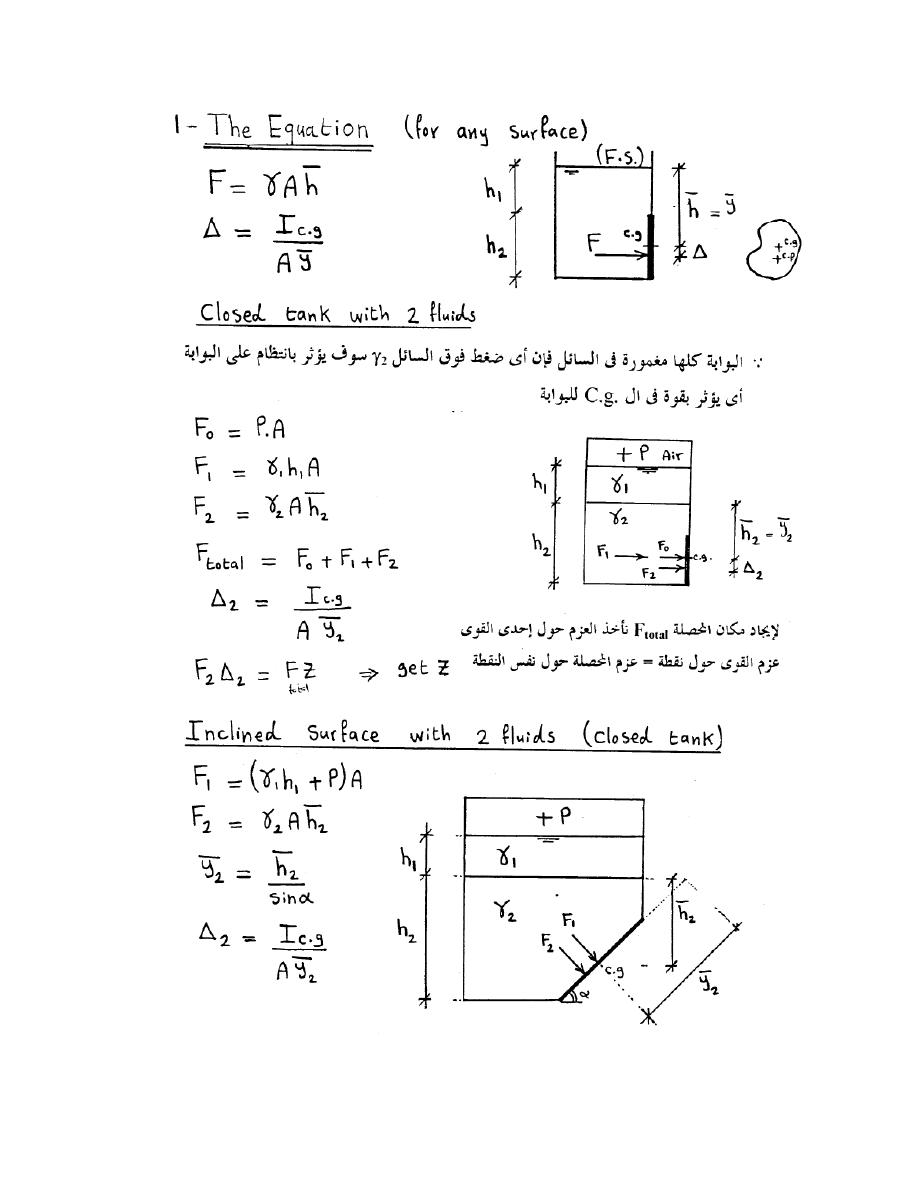 1- The Equation (for any surface)
F = γAh̄
Δ = I c.g / A ȳ
(F.S.)
h₁
h₂
F
c.g
h̄ = ȳ
Δ
c.g
c.p
Closed tank with 2 fluids
∵ البوابة كلها مغمورة فى السائل فإن أى ضغط فوق السائل γ₂ سوف يؤثر بانتظام على البوابة
أى يؤثر بقوة فى ال C.g. للبوابة
F₀ = P.A
F₁ = γ₁h₁A
F₂ = γ₂Ah̄₂
F total = F₀ + F₁ + F₂
Δ₂ = I c.g / A ȳ₂
+ P Air
h₁
γ₁
γ₂
h₂
F₁
F₀
F₂
c.g.
h̄₂ = ȳ₂
Δ₂
لإيجاد مكان المحصلة F total نأخذ العزم حول إحدى القوى
عزم القوى حول نقطة = عزم المحصلة حول نفس النقطة
F₂Δ₂ = F total Z ⇒ get Z
Inclined Surface with 2 fluids (closed tank)
F₁ = (γ₁h₁ + P)A
F₂ = γ₂Ah̄₂
ȳ₂ = h̄₂ / sinα
Δ₂ = I c.g / A ȳ₂
+ P
h₁
γ₁
γ₂
h₂
F₁
F₂
c.g
α
h̄₂
ȳ₂